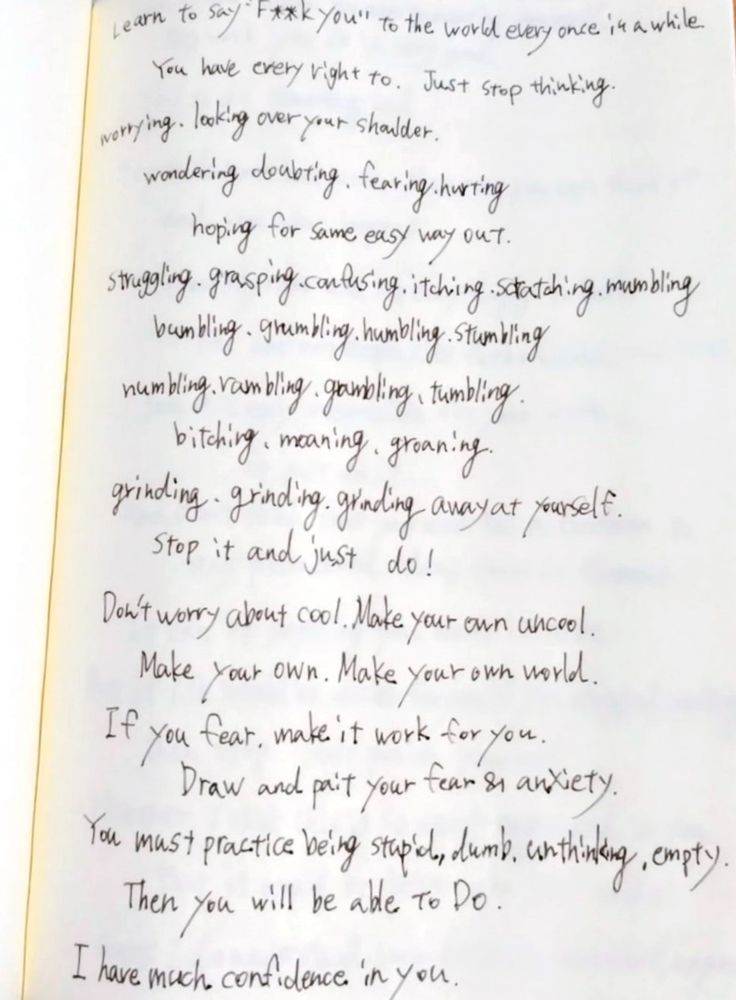 Learn to say "F**k you" to the world every once in a while.
You have every right to. Just stop thinking.
worrying. looking over your shoulder.
wondering doubting. fearing. hurting
hoping for same easy way out.
struggling. grasping. confusing. itching. scratching. mumbling
bumbling. grumbling. humbling. stumbling
numbling. rambling. gambling, tumbling.
bitching, moaning, groaning.
grinding. grinding. grinding away at yourself.
Stop it and just do!
Don't worry about cool. Make your own uncool.
Make your own. Make your own world.
If you fear, make it work for you.
Draw and pait your fear & anxiety.
You must practice being stupid, dumb, unthinking, empty.
Then you will be able To Do.
I have much confidence in you.